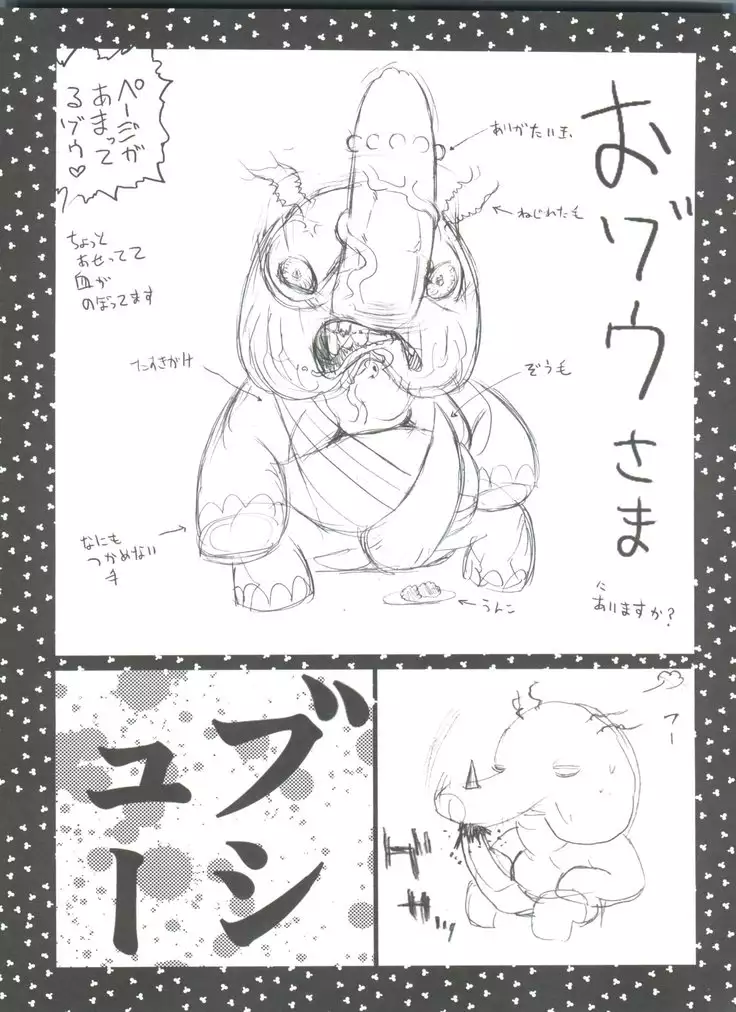 ページが
あまって
るゾウ♡
おゾウさま
に
ありますか?
ありがたい玉
ねじれた毛
ちょっと
あせってて
血が
のぼってます
たすきがけ
ぞう毛
なにも
つかめない
手
うんこ
ブシ
ュー
フー
ガ